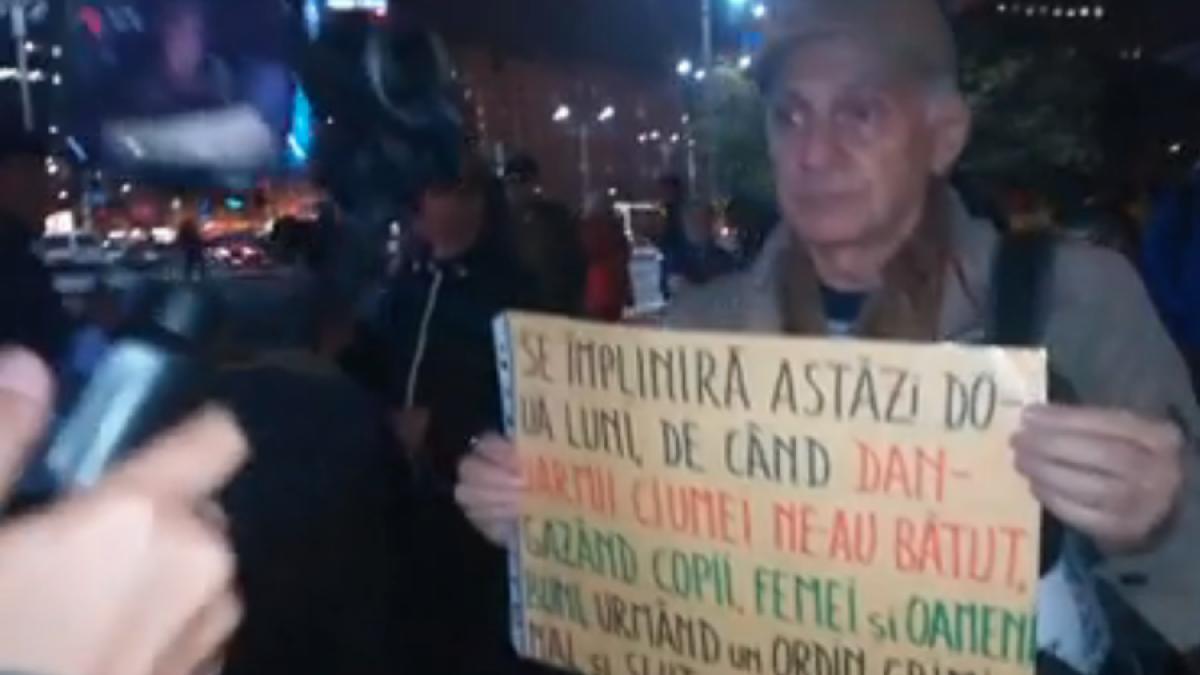 SE ÎMPLINIRĂ ASTĂZI DO-
UĂ LUNI, DE CÂND DAN-
JARMII CIUMEI NE-AU BĂTUT,
GAZÂND COPII, FEMEI și OAMENI
BUNI, URMÂND un ORDIN